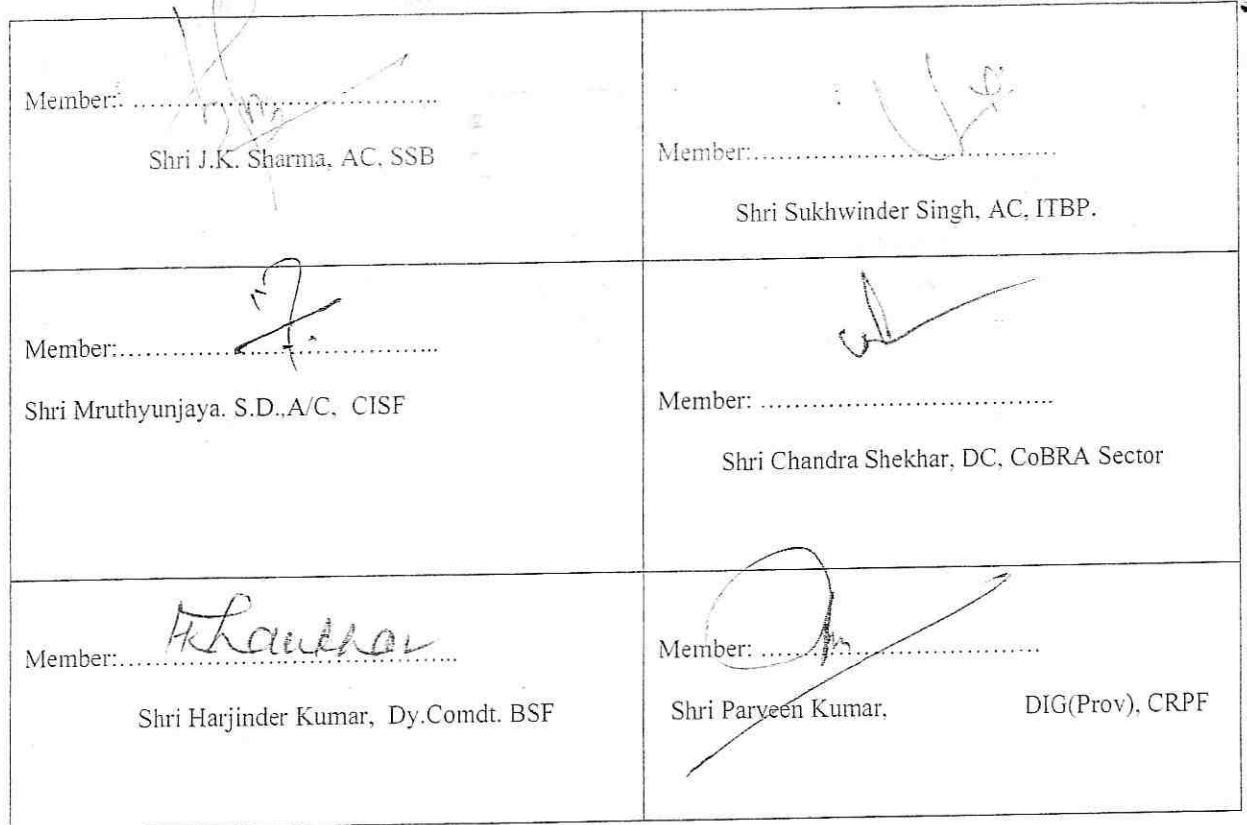 Member:. ....................................
Shri J.K. Sharma, AC, SSB
Member:....................................
Shri Sukhwinder Singh, AC, ITBP.
Member:.....................................
Shri Mruthyunjaya. S.D.,A/C, CISF
Member: ...................................
Shri Chandra Shekhar, DC, CoBRA Sector
Member:.......................................
Shri Harjinder Kumar, Dy.Comdt. BSF
Member: .................................
Shri Parveen Kumar, DIG(Prov), CRPF